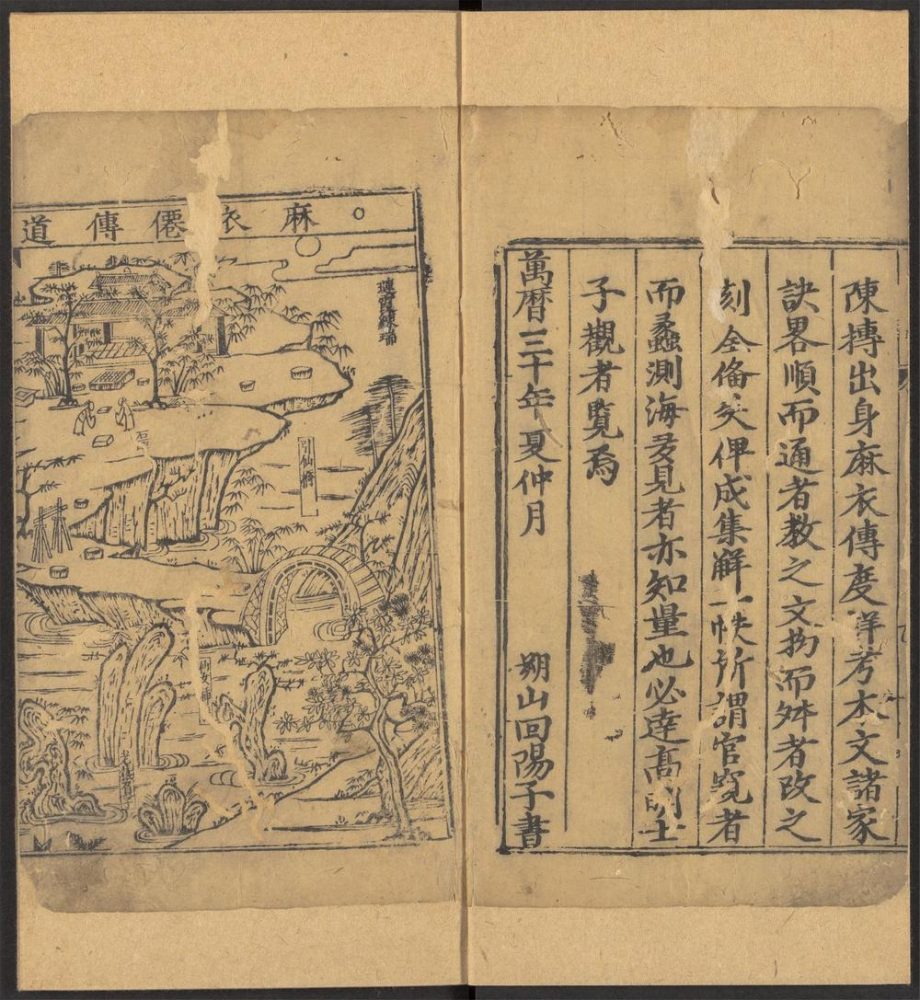 陳摶出身麻衣傳度詳考本文諸家
訣畧順而通者教之文拗而舛者改之
刻全俻矣俾成集解一帙所謂官覽者
而蠡測海多見者亦知量也必達高明士
子觀者覽焉
萬曆三十年夏仲月 朔山回陽子書
麻衣僊傳道
引仙橋